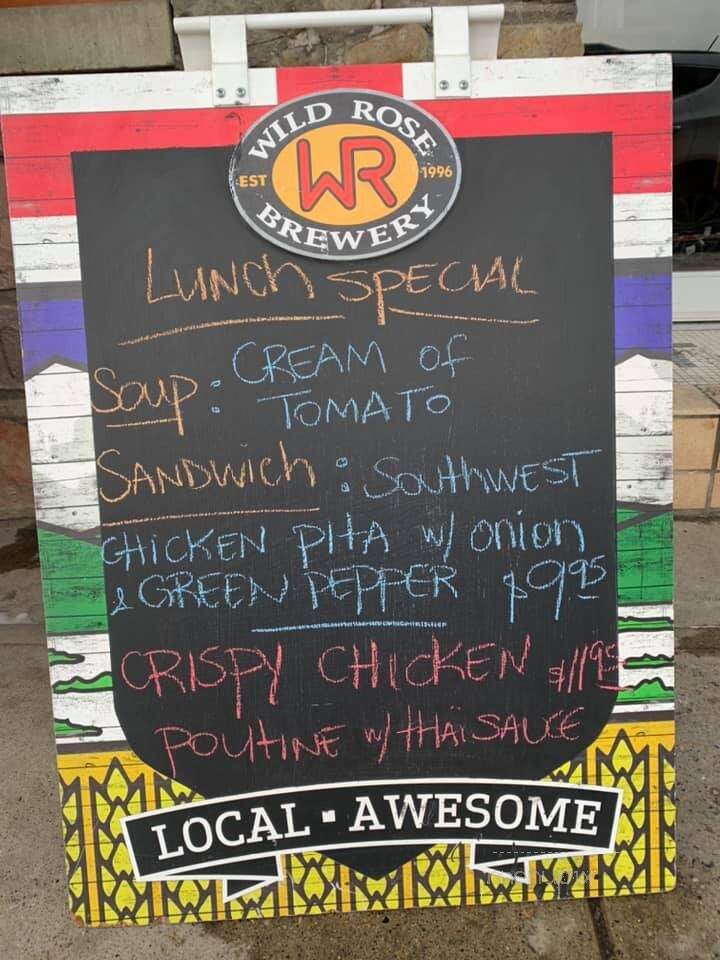 WILD ROSE
EST WR 1996
BREWERY
LUNCh SPECIAL
Soup: CREAM of
TOMATO
SANDWICh : SOUthWEST
CHICKEN PItA w/ onion
& GREEN PEPPER $9.95
CRISPY CHICKEN $11.95
POUtINE w/ tHAI SAUCE
LOCAL ▪ AWESOME